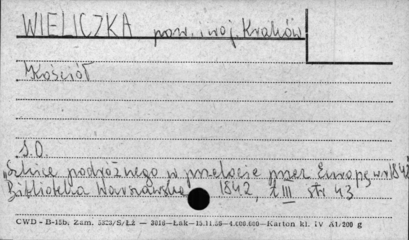 WIELICZKA pow. i woj. Kraków
Kościół
S.O.
„Szkice podróżnego w przelocie przez Europę w r. 1842
Biblioteka Warszawska 1842, t. III str 43
CWD - B-15b, Zam. /S/Łż — 3616 — Łak — 15.11.55 — 4.000.000 — Karton kl. IV A1/200 g